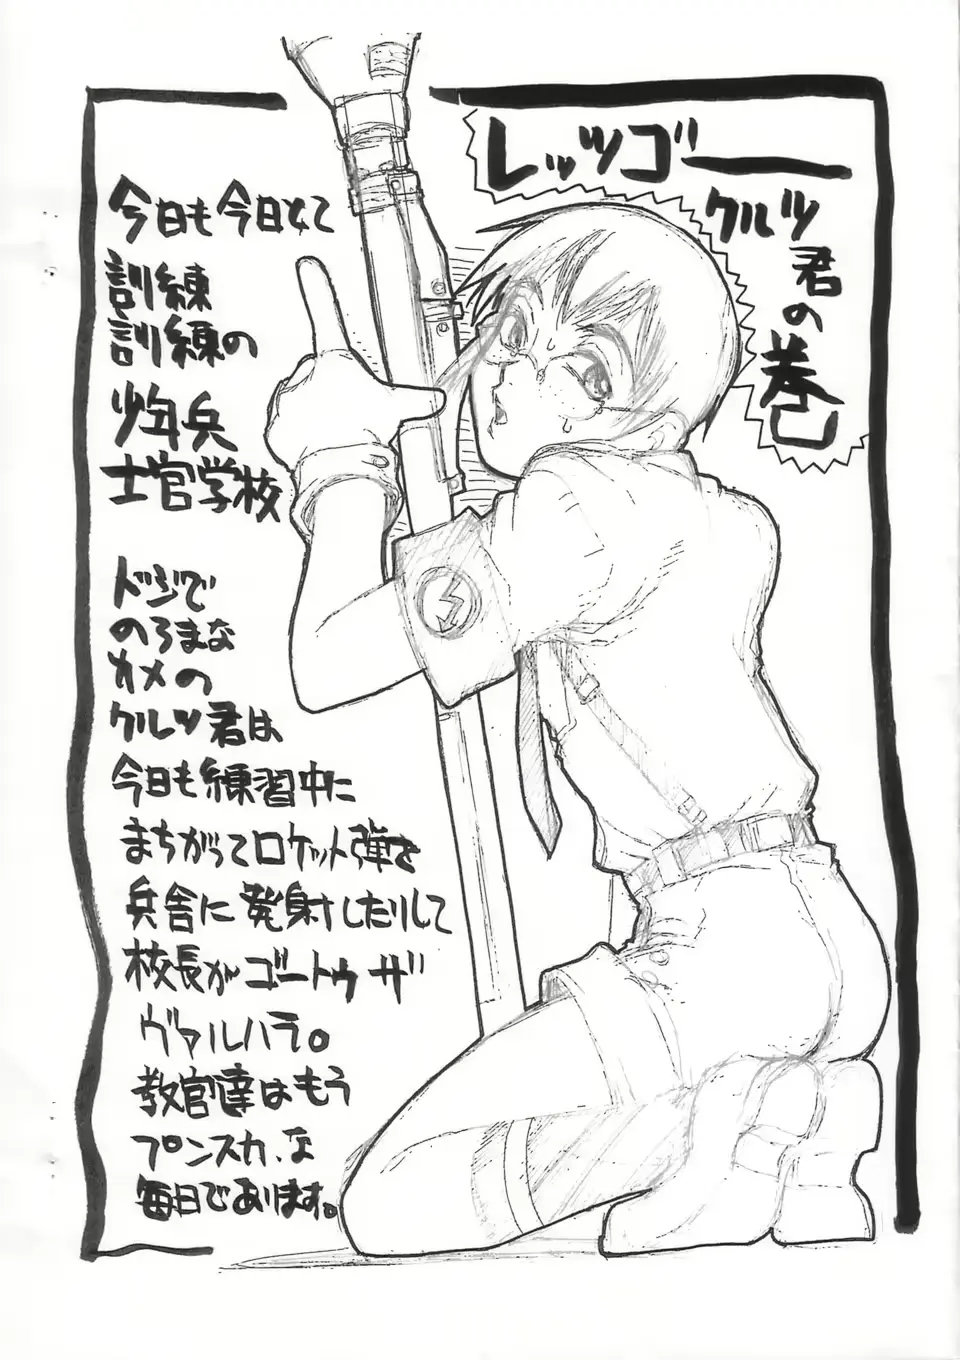 レッツゴー
クルツ
君の
巻
今日も今日とて
訓練
訓練の
少年兵
士官学校
ドジで
のろまな
カメの
クルツ君は
今日も練習中に
まちがってロケット弾を
兵舎に発射したりして
校長がゴートゥザ
ヴァルハラ。
教官達はもう
プンスカな
毎日であります。